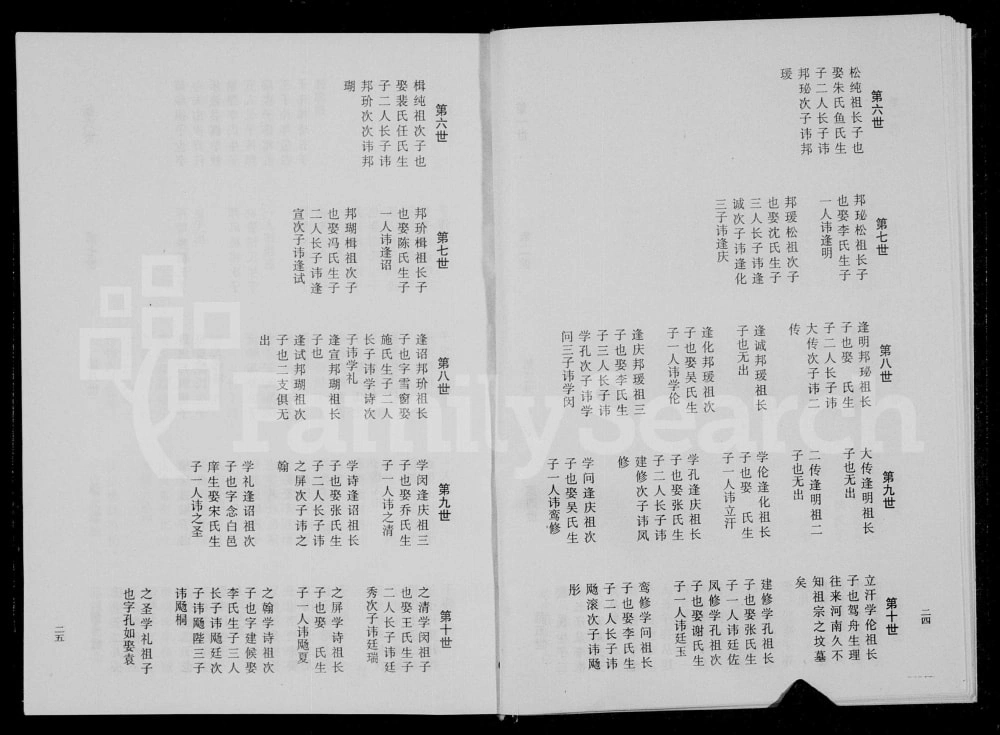 第六世
松纯祖长子也
娶朱氏鱼氏生
子二人长子讳
邦珌次子讳邦
瑗
第七世
邦珌松祖长子
也娶李氏生子
一人讳逢明
邦瑗松祖次子
也娶沈氏生子
三人长子讳逢
诚次子讳逢化
三子讳逢庆
第八世
逢明邦珌祖长
子也娶　氏生
子二人长子讳
大传次子讳二
传
逢诚邦瑗祖长
子也无出
逢化邦瑗祖次
子也娶吴氏生
子一人讳学伦
逢庆邦瑗祖三
子也娶李氏生
子三人长子讳
学孔次子讳学
问三子讳学闵
第九世
大传逢明祖长
子也无出
二传逢明祖二
子也无出
学伦逢化祖长
子也娶　氏生
子一人讳立汗
学孔逢庆祖长
子也娶张氏生
子二人长子讳
建修次子讳凤
修
学问逢庆祖次
子也娶吴氏生
子一人讳鸾修
第十世
立汗学伦祖长
子也驾舟生理
往来河南久不
知祖宗之坟墓
矣
建修学孔祖长
子也娶张氏生
子一人讳廷佐
凤修学孔祖次
子也娶谢氏生
子一人讳廷玉
鸾修学问祖长
子也娶李氏生
子二人长子讳
飏滚次子讳飏
彤
二四
第六世
楫纯祖次子也
娶裴氏任氏生
子二人长子讳
邦玠次次讳邦
瑚
第七世
邦玠楫祖长子
也娶陈氏生子
一人讳逢诏
邦瑚楫祖次子
也娶冯氏生子
二人长子讳逢
宣次子讳逢试
第八世
逢诏邦玠祖长
子也字雪窗娶
施氏生子二人
长子讳学诗次
子讳学礼
逢宣邦瑚祖长
子也
逢试邦瑚祖次
子也二支俱无
出
第九世
学闵逢庆祖三
子也娶乔氏生
子一人讳之清
学诗逢诏祖长
子也娶张氏生
子二人长子讳
之屏次子讳之
翰
学礼逢诏祖次
子也字念白邑
庠生娶宋氏生
子一人讳之圣
第十世
之清学闵祖子
也娶王氏生子
二人长子讳廷
秀次子讳廷瑞
之屏学诗祖长
子也娶　氏生
子一人讳飏夏
之翰学诗祖次
子也字建候娶
李氏生子三人
长子讳飏廷次
子讳飏陛三子
讳飏桐
之圣学礼祖子
也字孔如娶袁
二五
FamilySearch